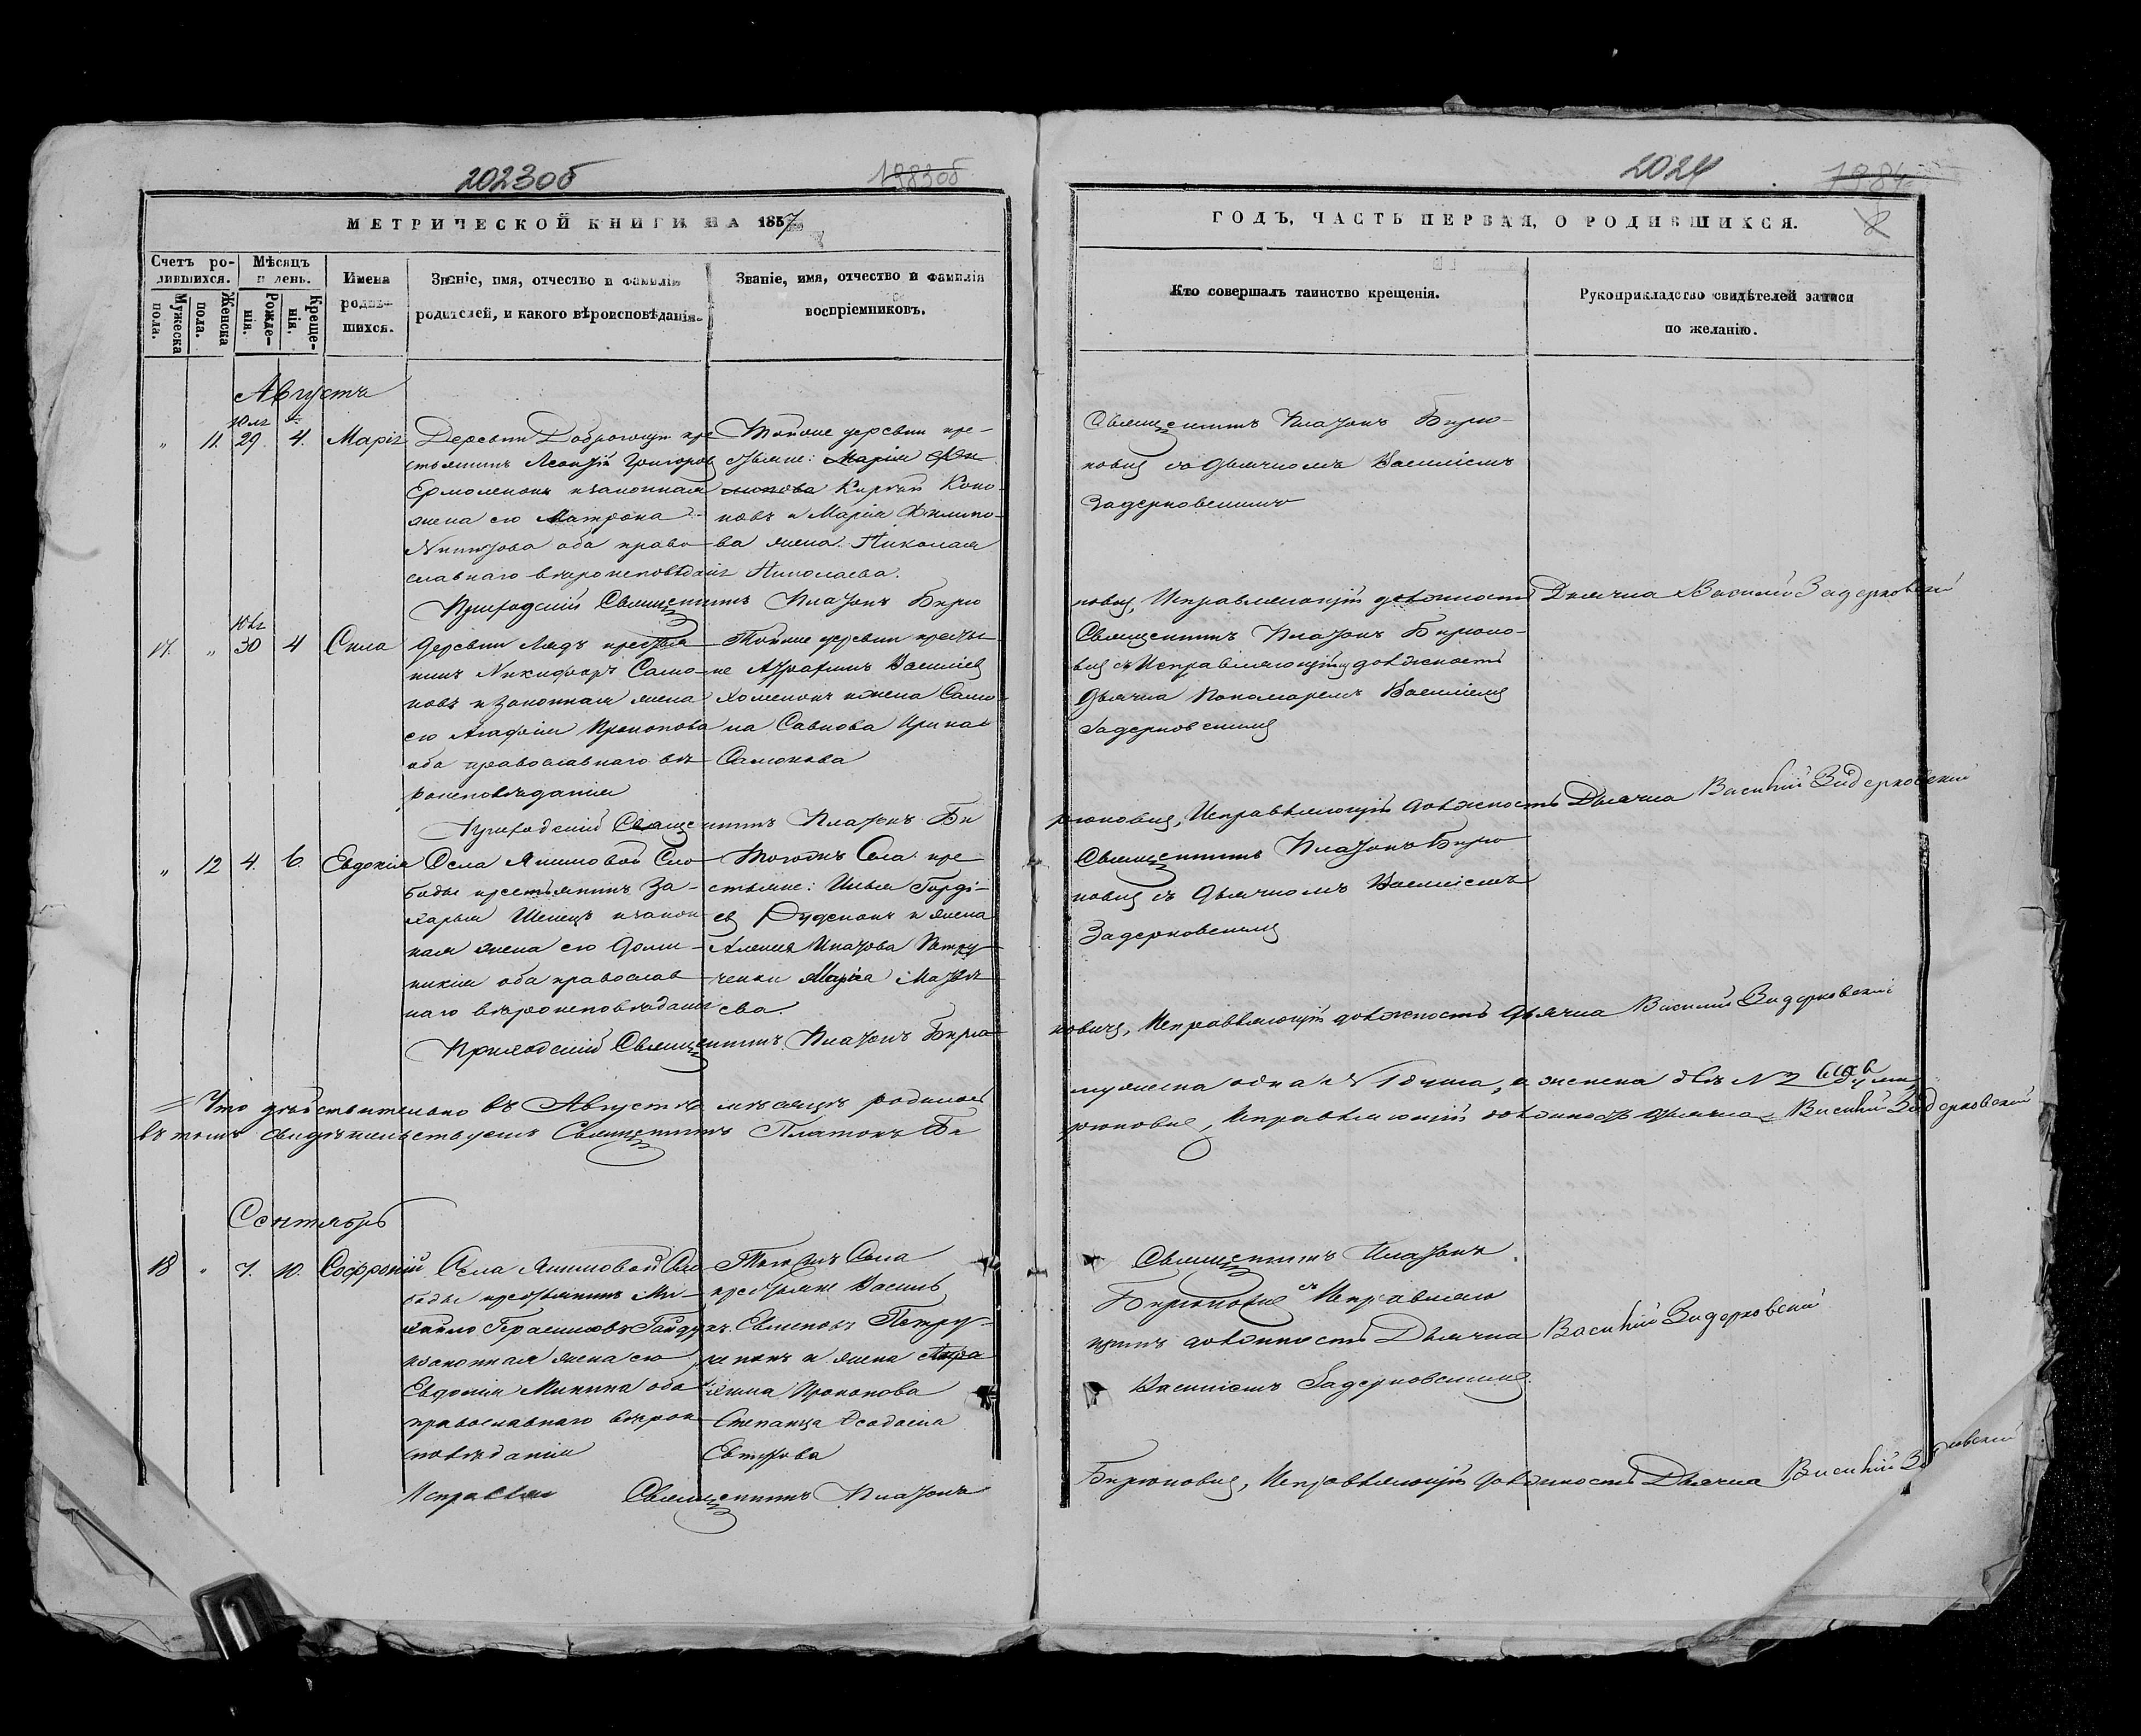 2023об
1983об
МЕТРИЧЕСКОЙ КНИГИ НА 1857
Счетъ ро-
дившихся.
Мѣсяцъ
и день.
Мужеска
пола.
Женска
пола.
Рожде-
нія.
Креще-
нія.
Имена
родив-
шихся.
Званіе, имя, отчество и фамилія
родителей, и какого вѣроисповѣданія.
Званіе, имя, отчество и фамилія
воспріемниковъ.
Августъ
" 11. Юля 29. 4. Марія
Деревни кре
стьянинъ Григоров
Ермоленокъ и законная
жена его Матрона
оба право
славнаго вѣроисповѣданія
Тойже деревни кре-
стьяне: Марія Фи
липова Коно
новъ и Марія Филипо-
ва жена Николая
Николаева.
Приходскій Священникъ Платонъ Бирю
17. " Юля 30 4 Сила
Деревни Лядъ крестья
нинъ Никифоръ Само-
новъ и законная жена
его Агафія Прокопова
оба православнаго вѣ
роисповѣданія
Тойже деревни крестья
не Василіев
Хоменокъ и жена Само
на Савкова Ирина
Самонова
Приходскій Священникъ Платонъ Би
" 12 4. 6. Евдокія
Села Якимовой Сло
боды крестьянинъ За-
харья Шевецъ и закон
ная жена его Доми-
никія оба православ
наго вѣроисповѣданія
Тогожъ Села кре
стьяне: Илья Горді-
ев Руденокъ и жена
Алексея Игнатова Петру
ченки Марья Матвѣ
ева.
Приходскій Священникъ Платонъ Бирю
Что дѣйствительно въ Августѣ мѣсяцѣ родилось
въ томъ свидѣтельствуемъ Священникъ Платонъ Би
Сентябрь
18 " 7. 10. Софроній
Села Якимовой Сло
боды крестьянинъ Ми-
хайло Герасимовъ Гайду
и законная жена его
Евдокія Минина оба
православнаго вѣрои
сповѣданія
Тогожъ Села
крестьяне Василь
Евменовъ Петру-
ченокъ и жена
Прокопова
Степанца Феодосія
Священникъ Платонъ
2024
1984
ГОДЪ, ЧАСТЬ ПЕРВАЯ, О РОДИВШИХСЯ.
Кто совершалъ таинство крещенія.
Рукоприкладство свидѣтелей записи
по желанію.
Священникъ Платонъ Бирю-
кович со Дьячкомъ Василіемъ
Задерковскимъ
кович, Исправляющій должность Дьячка Василій Задерковскій
Священникъ Платонъ Бирюко-
вич съ Исправляющим должность
Дьячка Пономаремъ Василіемъ
Задерковским
рюкович, Исправляющій должность Дьячка Василій Задерковскій
Священникъ Платонъ Бирю
кович съ Дьячкомъ Василіемъ
Задерковским
кович, Исправляющій должность Дьячка Василій Задерковскій
мужеска одна N 1 душа, а женска двѣ N 2 души,
рюкович, Исправляющій должность Дьячка Василій Задерковскій
Священникъ Платонъ
Бирюкович съ Исправляю
щимъ должность Дьячка Василій Задерковскій
Василіемъ Задерковским
Бирюкович, Исправляющій должность Дьячка Василій